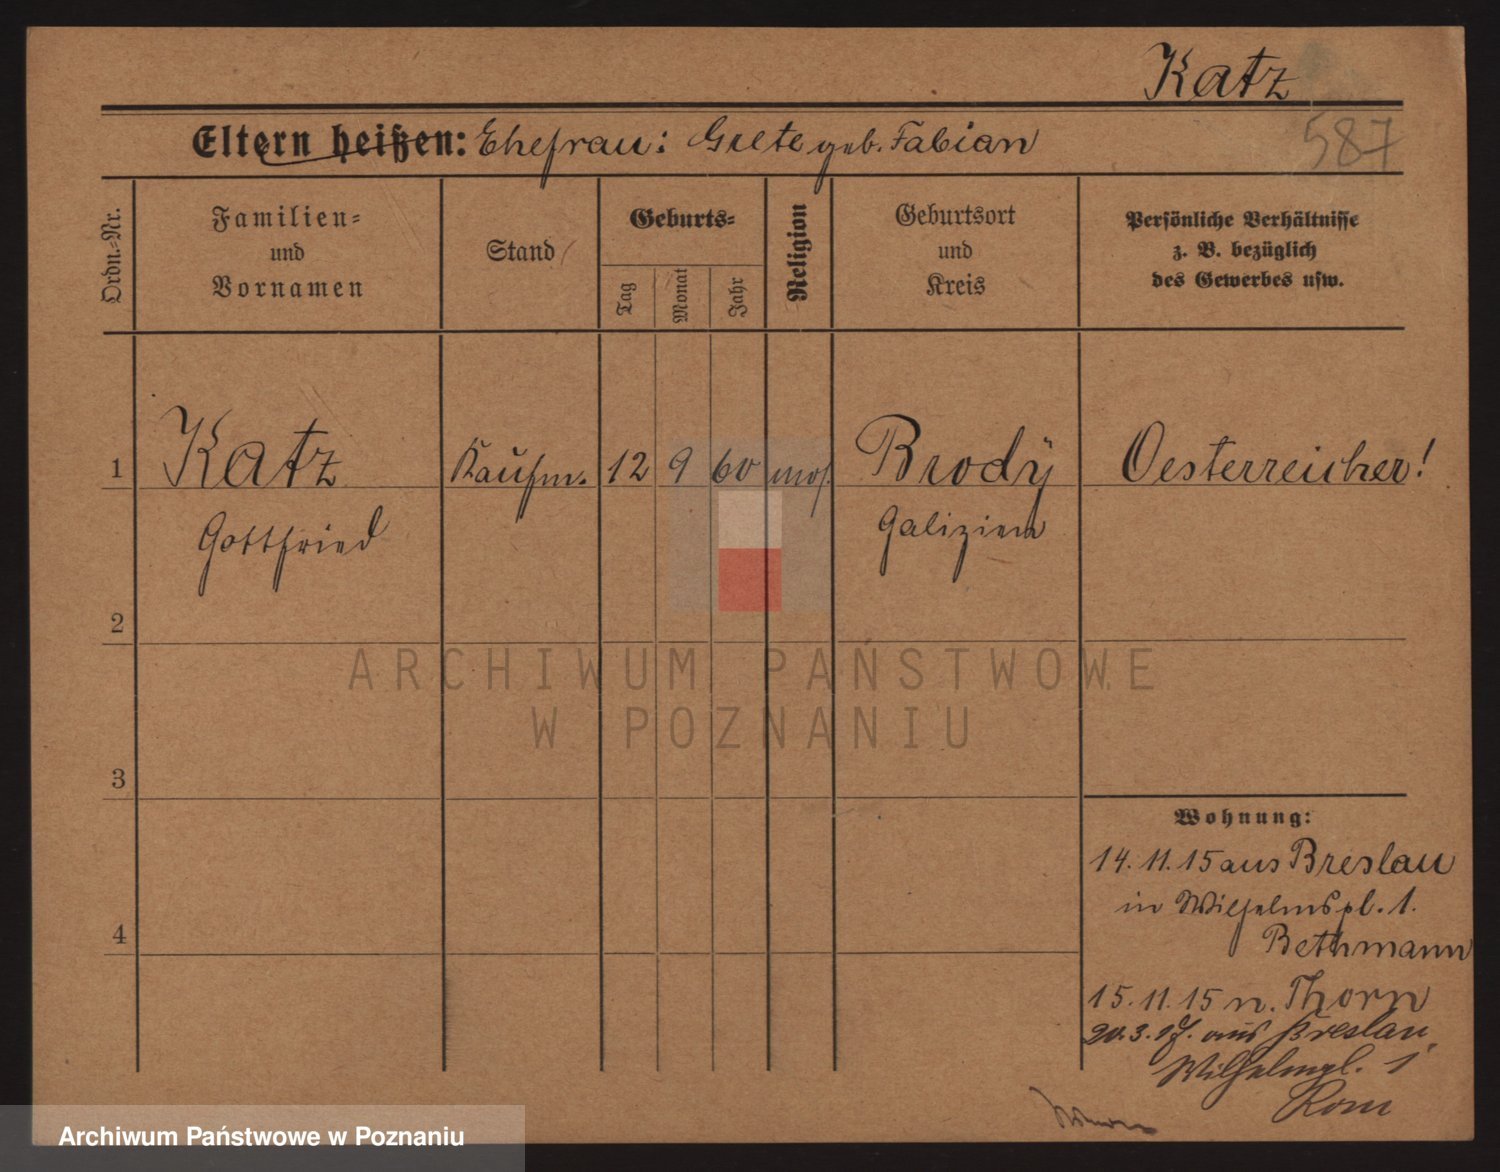 Katz
587
Eltern heißen: Ehefrau: Grete geb. Fabian
Ordn.-Nr.
Familien-
und
Vornamen
Stand
Geburts-
Tag
Monat
Jahr
Religion
Geburtsort
und
Kreis
Persönliche Verhältnisse
z. B. bezüglich
des Gewerbes usw.
1 Katz Kaufm. 12 9 60 mos. Brody Oesterreicher!
Gottfried Galizien
2
ARCHIWUM PAŃSTWOWE
W POZNANIU
3
Wohnung:
14. 11. 15 aus Breslau
in Wilhelmspl. 1.
4
Bethmann
15. 11. 15 n. Thorn
20. 3. aus Breslau
Wilhelmpl. 1
Rom
Archiwum Państwowe w Poznaniu